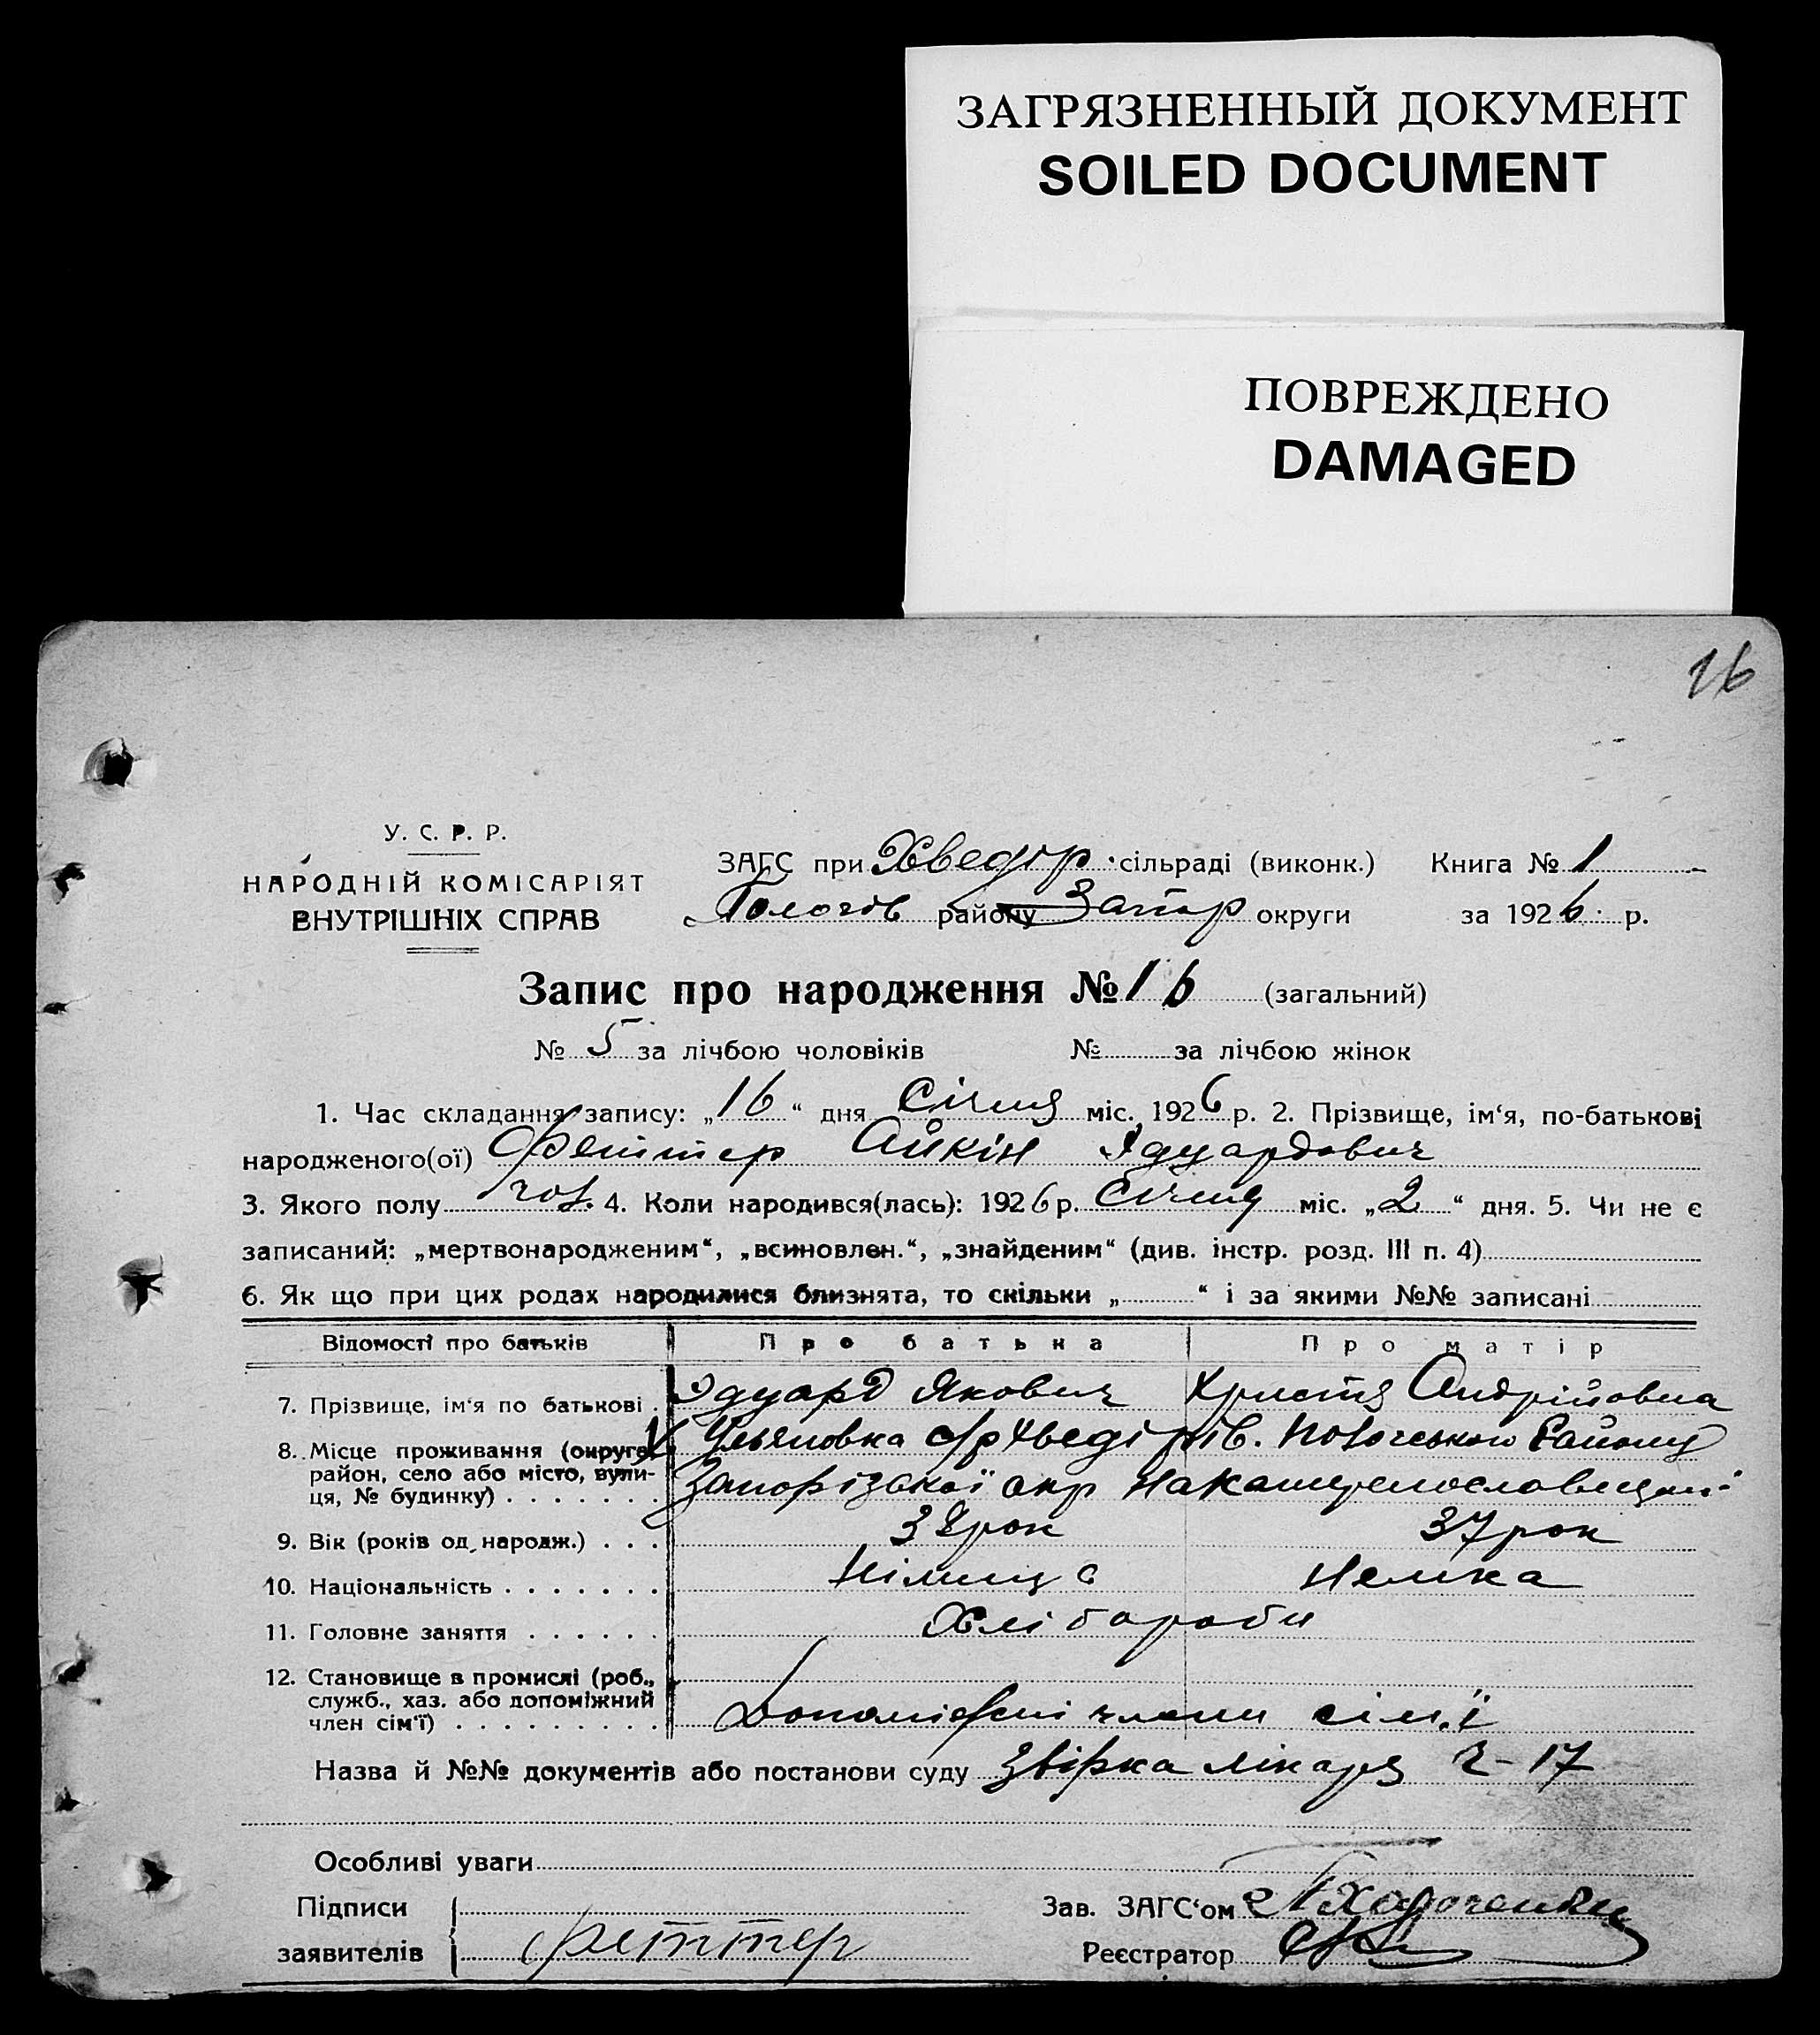 ЗАГРЯЗНЕННЫЙ ДОКУМЕНТ
SOILED DOCUMENT
ПОВРЕЖДЕНО
DAMAGED
16
У. С. Р. Р.
НАРОДНІЙ КОМІСАРІЯТ
ВНУТРІШНІХ СПРАВ
ЗАГС при Хведір. сільраді (виконк.) Книга № 1
Пологів району Запор округи за 1926 р.
Запис про народження № 16 (загальний)
№ 5 за лічбою чоловіків № за лічбою жінок
1. Час складання запису: „16“ дня Січня міс. 1926 р. 2. Прізвище, ім‘я, по-батькові
народженого(ої) Феттер Айкін Эдуардович
3. Якого полу чол. 4. Коли народився(лась): 1926 р. Січня міс. „2“ дня. 5. Чи не є
записаний: „мертвонародженим“, „всиновлен.“, „знайденим“ (див. інстр. розд. III п. 4)
6. Як що при цих родах народилися близнята, то скільки „ “ і за якими №№ записані
Відомості про батьків Про батька Про матір
7. Прізвище, ім‘я по батькові . Эдуард Якович Христя Андрійовна
8. Місце проживання (округа, Ульяновка с/р Хведірів. Пологського Району
район, село або місто, вули- Запорізької окр на Катеринославщині
ця, № будинку) . . . . . . .
9. Вік (років од народж.) . . . 38 рок 37 рок
10. Національність . . . . . . . Німець Немка
11. Головне заняття . . . . . . Хлібороби
12. Становище в промислі (роб.,
служб., хаз. або допоміжний
член сім‘ї) . . . . . . . . . Допоміжні члени сім.ї
Назва й №№ документів або постанови суду Звірка лікаря ч-17
Особливі уваги
Підписи Зав. ЗАГС‘ом
заявителів Феттер Реєстратор